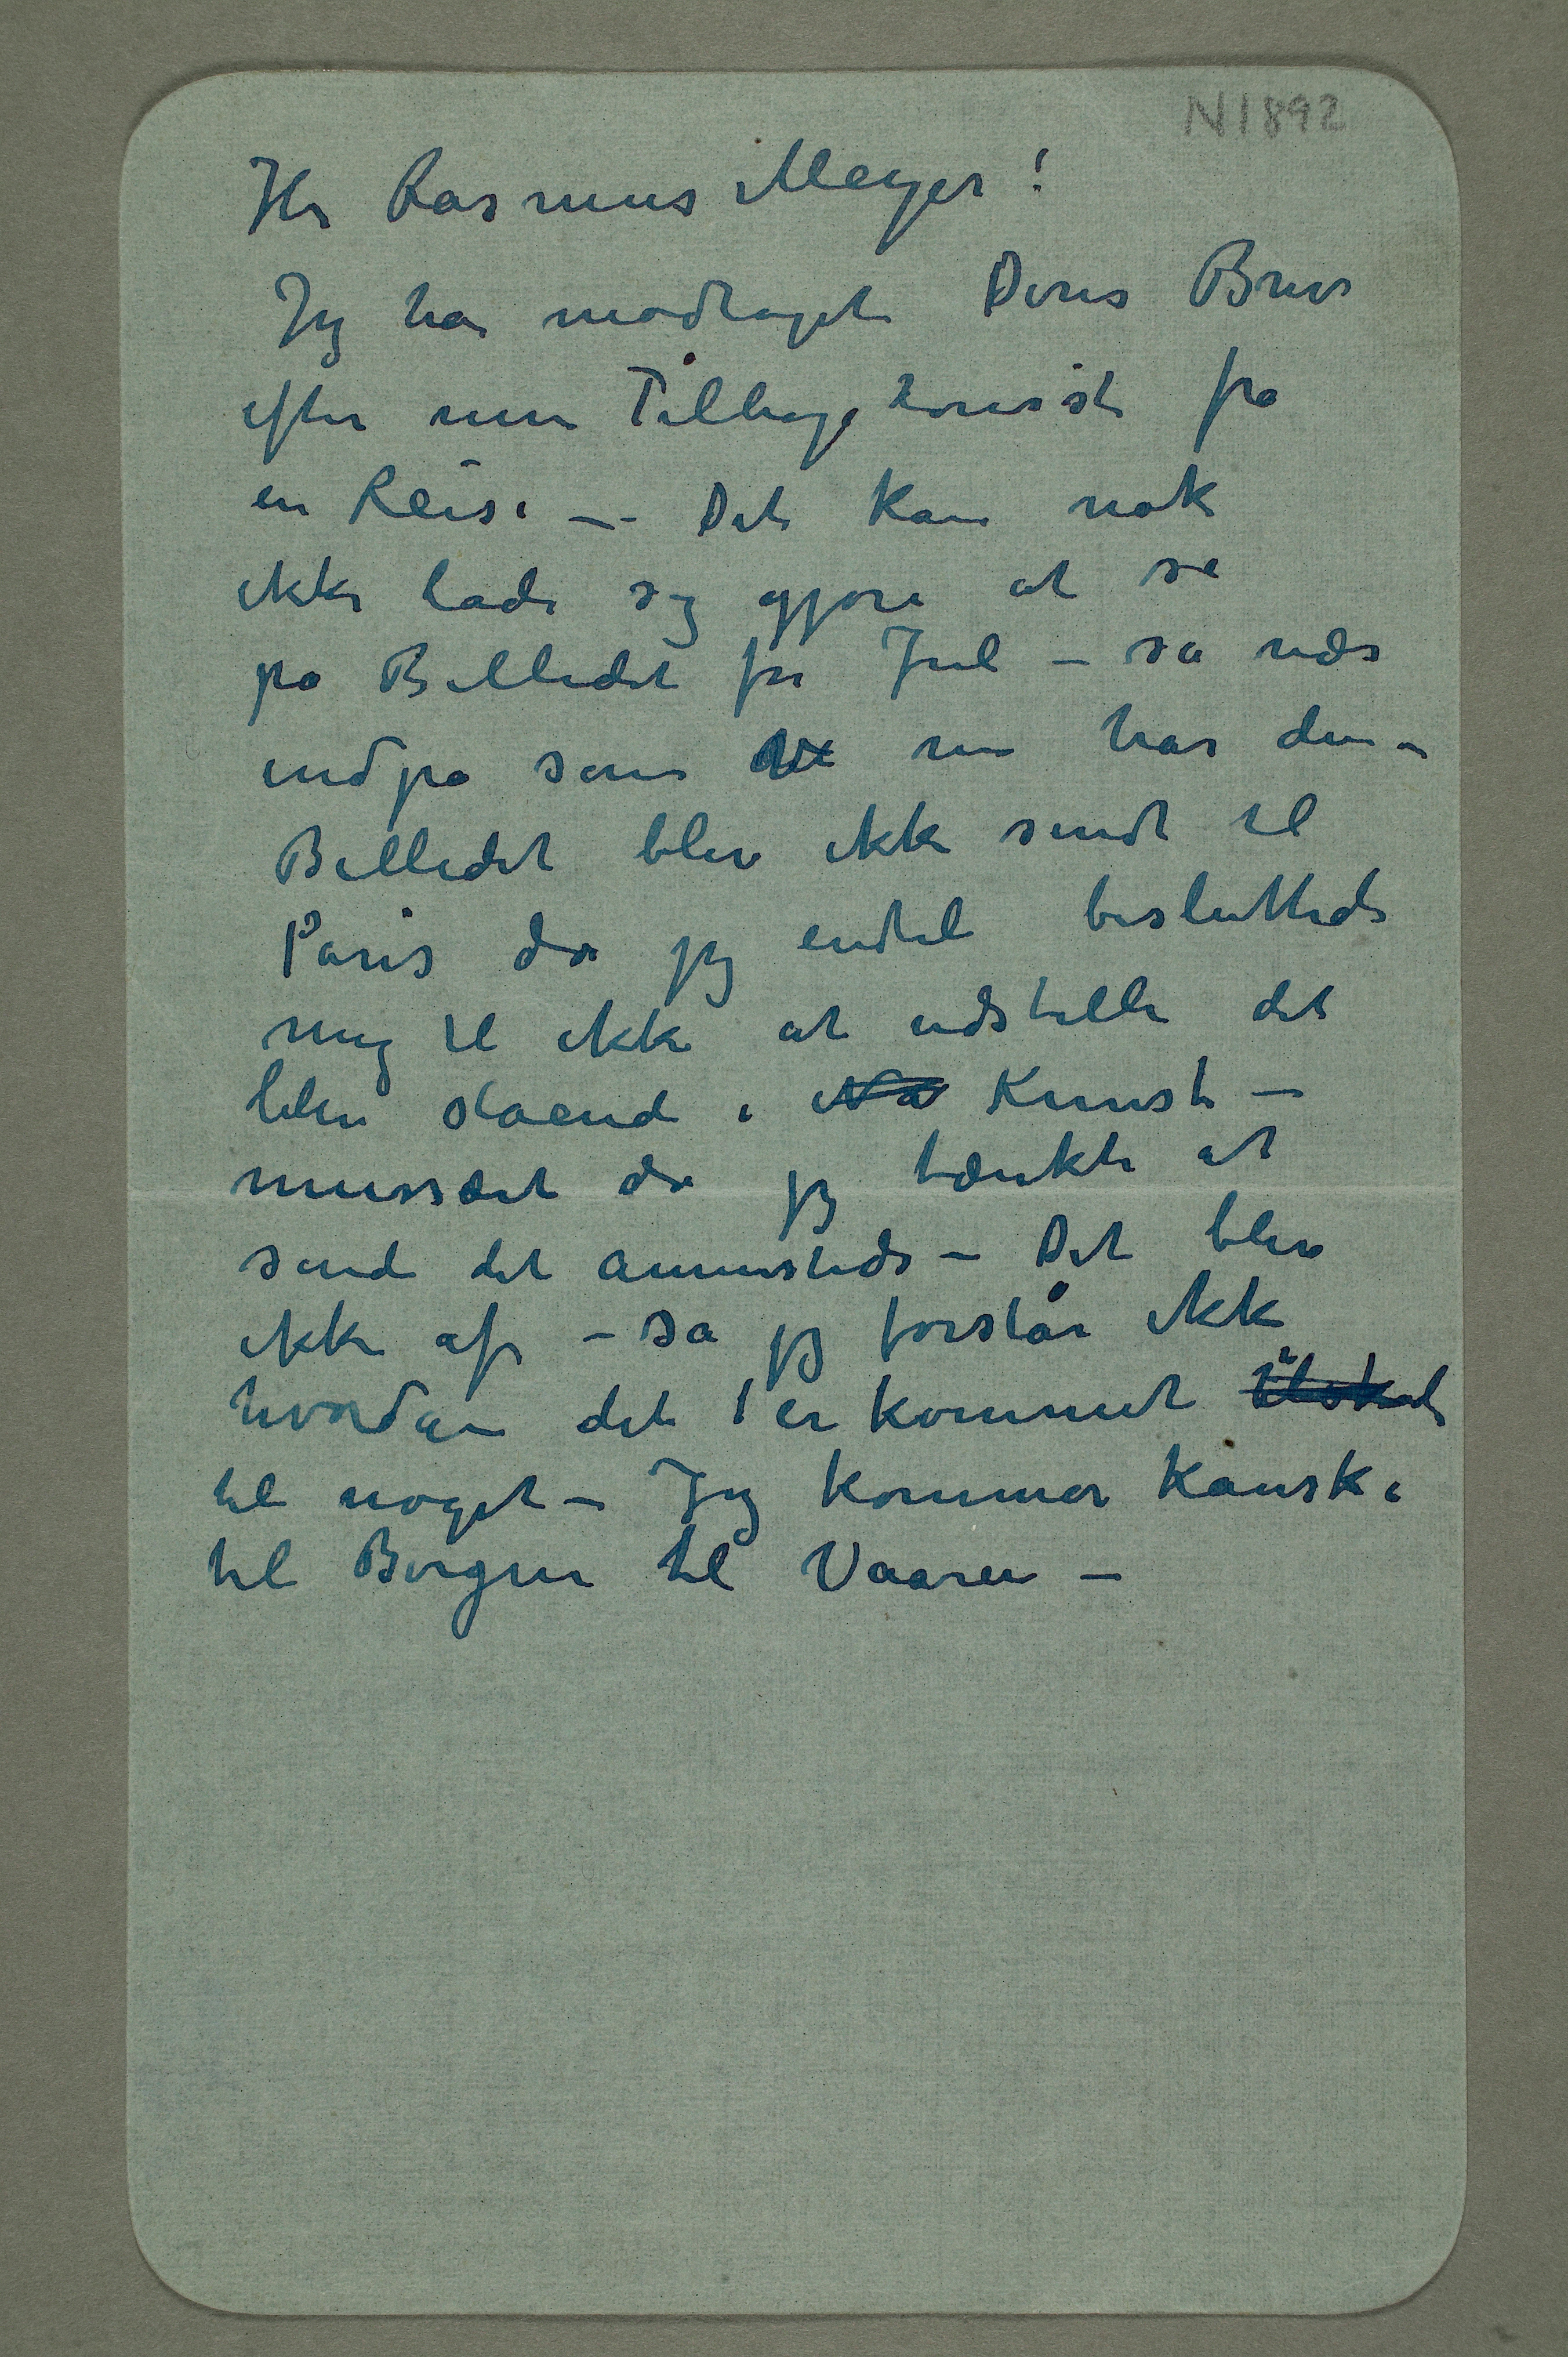 N 1892
Hr Rasmus Meyer!
Jeg har modtaget Deres Brev
efter min Tilbagekomst fra
en Reise – Det kan nok
ikke lade sig gjøre at se
på Billedet før Jul – så nær
indpå som vi nu har den –
Billedet blev ikke sendt til
Paris da jeg endel besluttede
mig til ikke at udstille det
blev stående i Na Kunst–
musæet da jeg tænkte at
sende det annensteds – Det blev
ikke af – så jeg forstår ikke
hvordan det er kommet tilskade
til noget – Jeg kommer kanske
til Bergen til Vaaren –